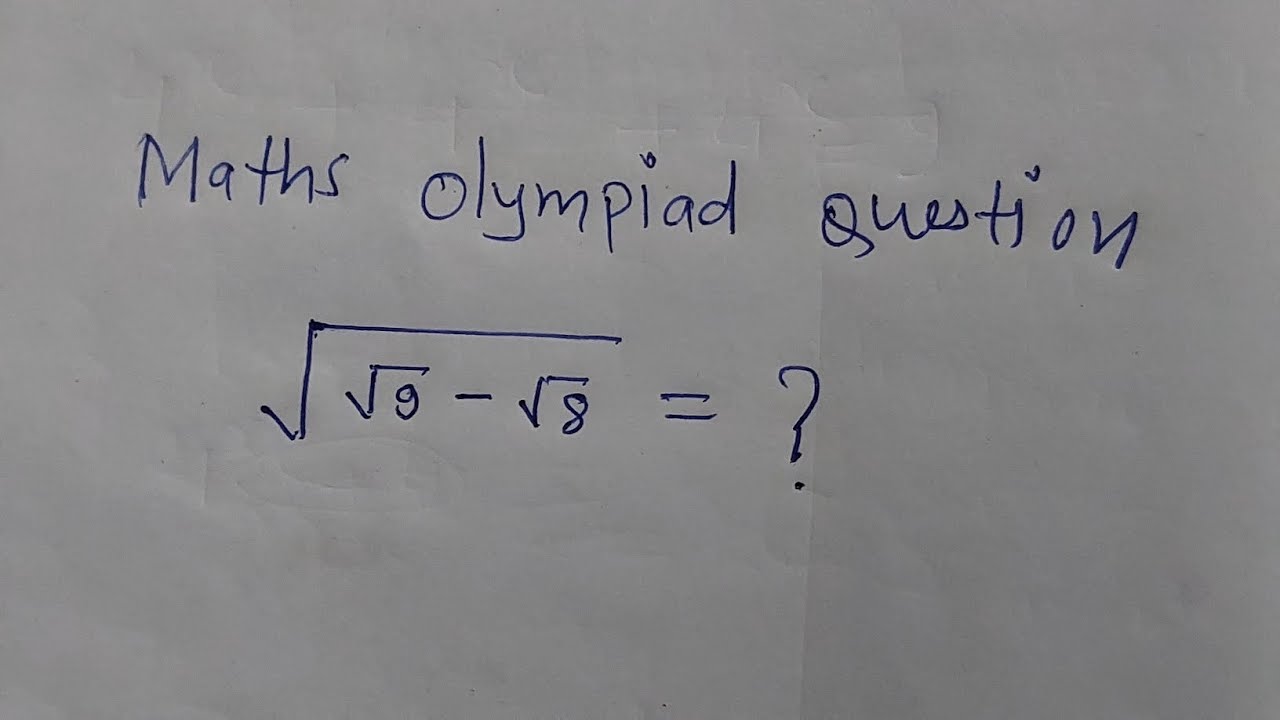 Maths Olympiad Question
√(√9 - √8) = ?